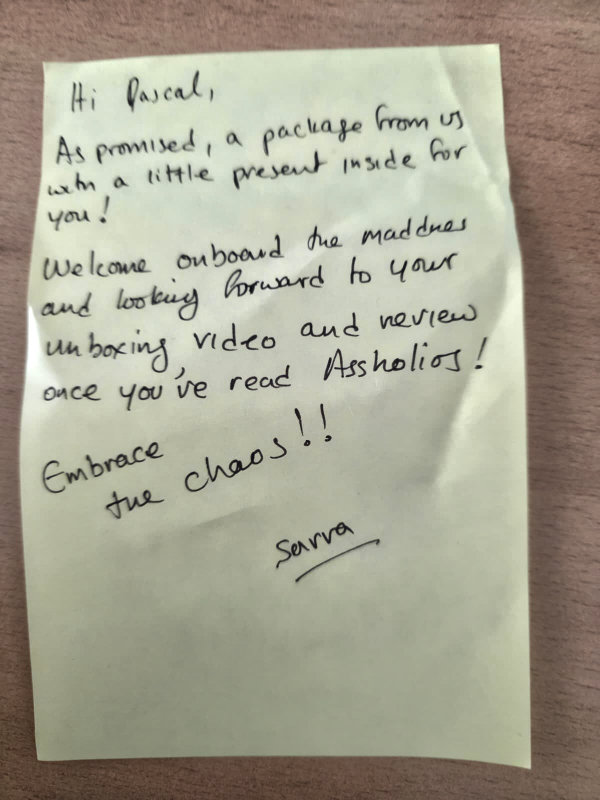 Hi Pascal,
As promised, a package from us
with a little present inside for
you!
Welcome onboard the maddnes
and looking forward to your
unboxing video and review
once you've read Assholios!
Embrace
the chaos!!
Sarra